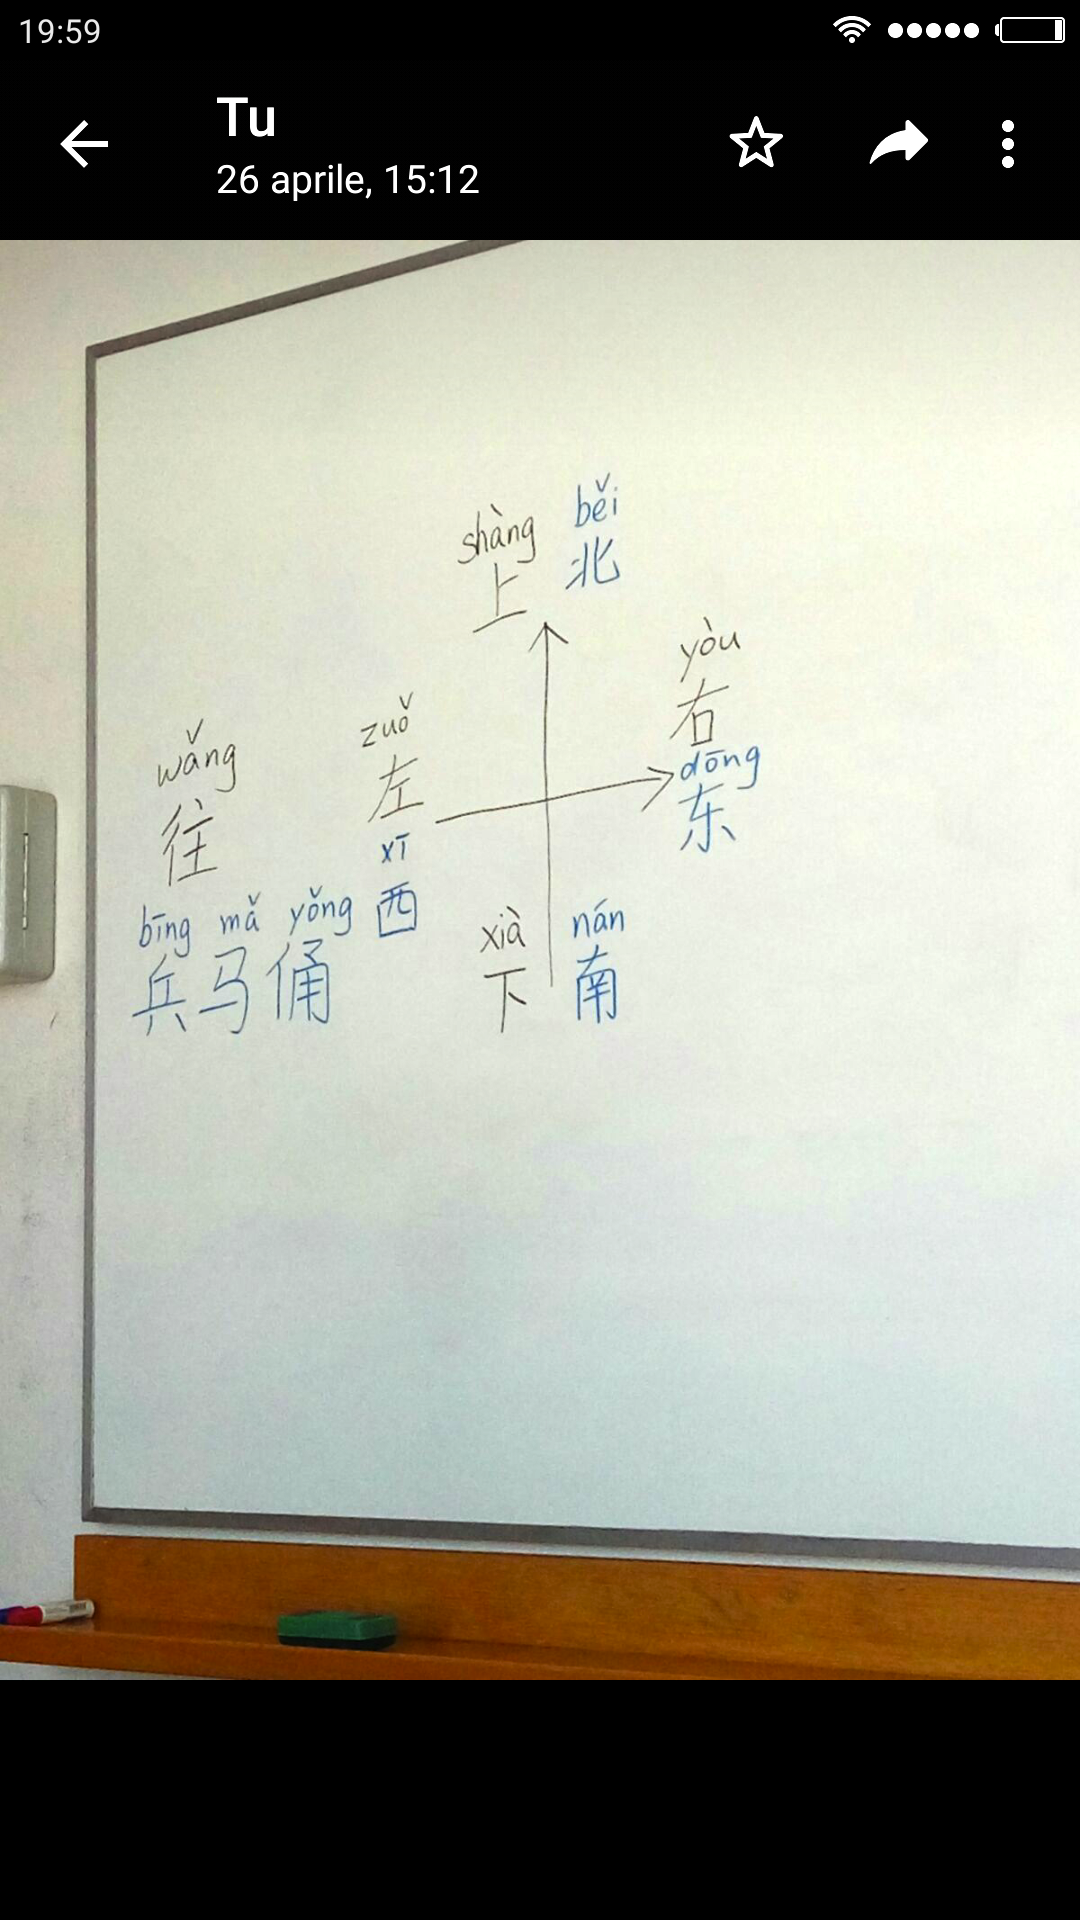 19:59
Tu
26 aprile, 15:12
shàng běi
上 北
yòu
右
dōng
东
zuǒ
左
xī
西
wǎng
往
bīng mǎ yǒng
兵马俑
xià nán
下 南